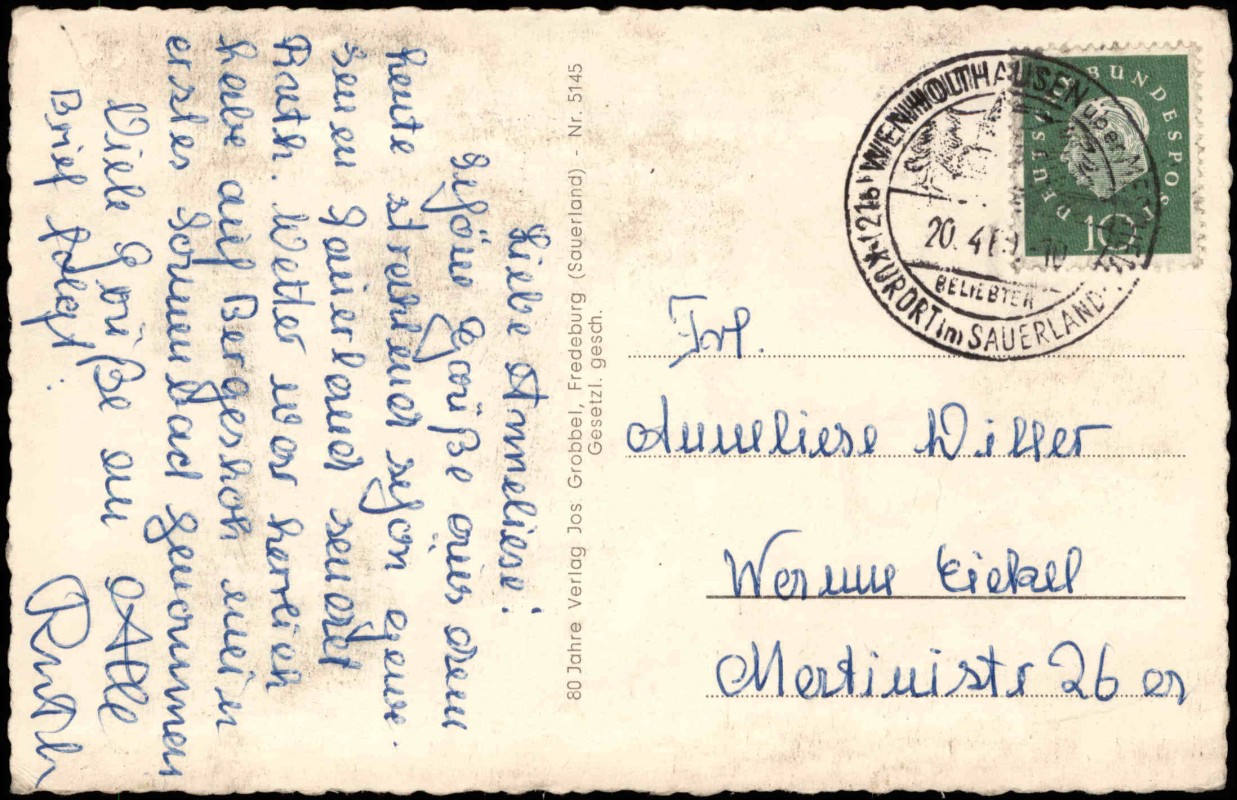 Liebe Anneliese!
Schöne Grüße aus dem
heute strahlend schon gewe.
senen Sauerland sendet
Ruth. Wetter war herrlich
habe auf Bergeshöh mein
erstes Sonnenbad genommen
Viele Grüße an Alle
Brief folgt! Ruth
80 Jahre Verlag Jos. Grobbel, Fredeburg (Sauerland) - Nr. 5145
Gesetzl. gesch.
DEUTSCHE BUNDESPOST
10
(21b) WENHOLTHAUSEN über MESCHEDE
20. 4. 59 - 10
BELIEBTER
KURORT im SAUERLAND
Frl.
Anneliese Witter
Wanne Eickel
Martinistr 26 a